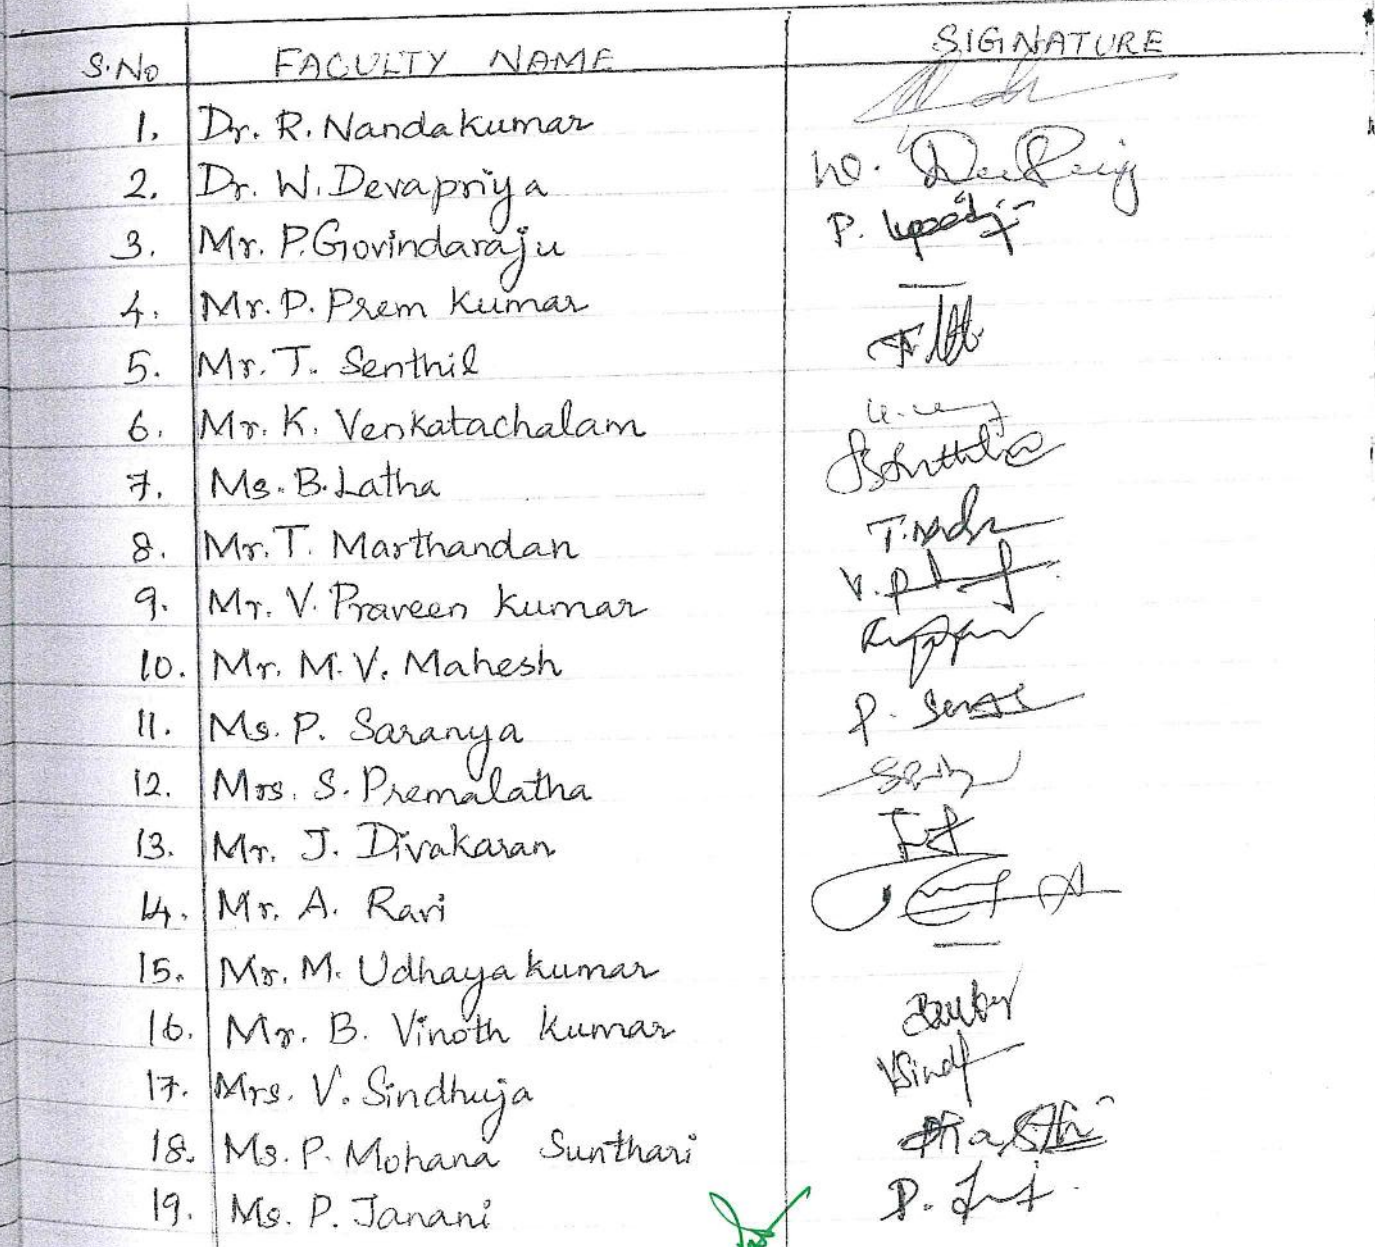 S.No FACULTY NAME SIGNATURE
1. Dr. R. Nandakumar
2. Dr. W. Devapriya W.
3. Mr. P. Govindaraju P.
4. Mr. P. Prem Kumar —
5. Mr. T. Senthil
6. Mr. K. Venkatachalam
7. Ms. B. Latha
8. Mr. T. Marthandan T.
9. Mr. V. Praveen Kumar V. P
10. Mr. M. V. Mahesh
11. Ms. P. Saranya P.
12. Mrs. S. Premalatha
13. Mr. J. Divakaran
14. Mr. A. Ravi
15. Mr. M. Udhayakumar —
16. Mr. B. Vinoth Kumar
17. Mrs. V. Sindhuja VSindh
18. Ms. P. Mohana Sunthari
19. Ms. P. Janani P.